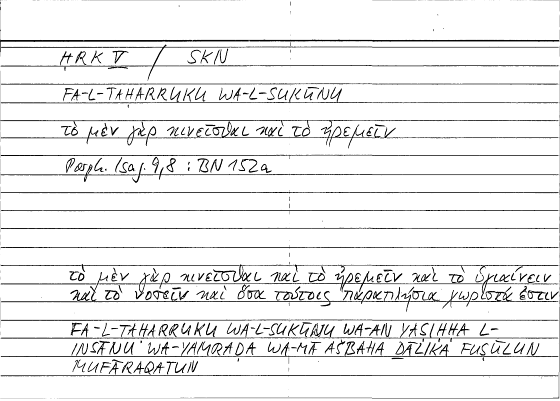 ḤRK V / SKN
FA-L-TAḤARRUKU WA-L-SUKŪNU
τὸ μὲν γὰρ κινεῖσθαι καὶ τὸ ἠρεμεῖν
Porph. Isag. 9,8 : BN 152a
τὸ μὲν γὰρ κινεῖσθαι καὶ τὸ ἠρεμεῖν καὶ τὸ ὑγιαίνειν
καὶ τὸ νοσεῖν καὶ ὅσα τούτοις παραπλήσια χωριστά ἐστιν
FA-L-TAḤARRUKU WA-L-SUKŪNU WA-AN YAṢIḤḤA L-
INSĀNU WA-YAMRAḌA WA-MĀ AŠBAHA ḎĀLIKA FUṢŪLUN
MUFĀRAQATUN